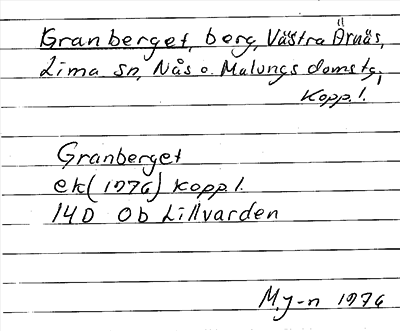 Granberget, berg, Västra Ärnäs,
Lima sn, Nås o. Malungs domstg,
Kopp. l.
Granberget
ek (1976) Kopp. l.
14D Ob Lillvarden
M.y-n 1976